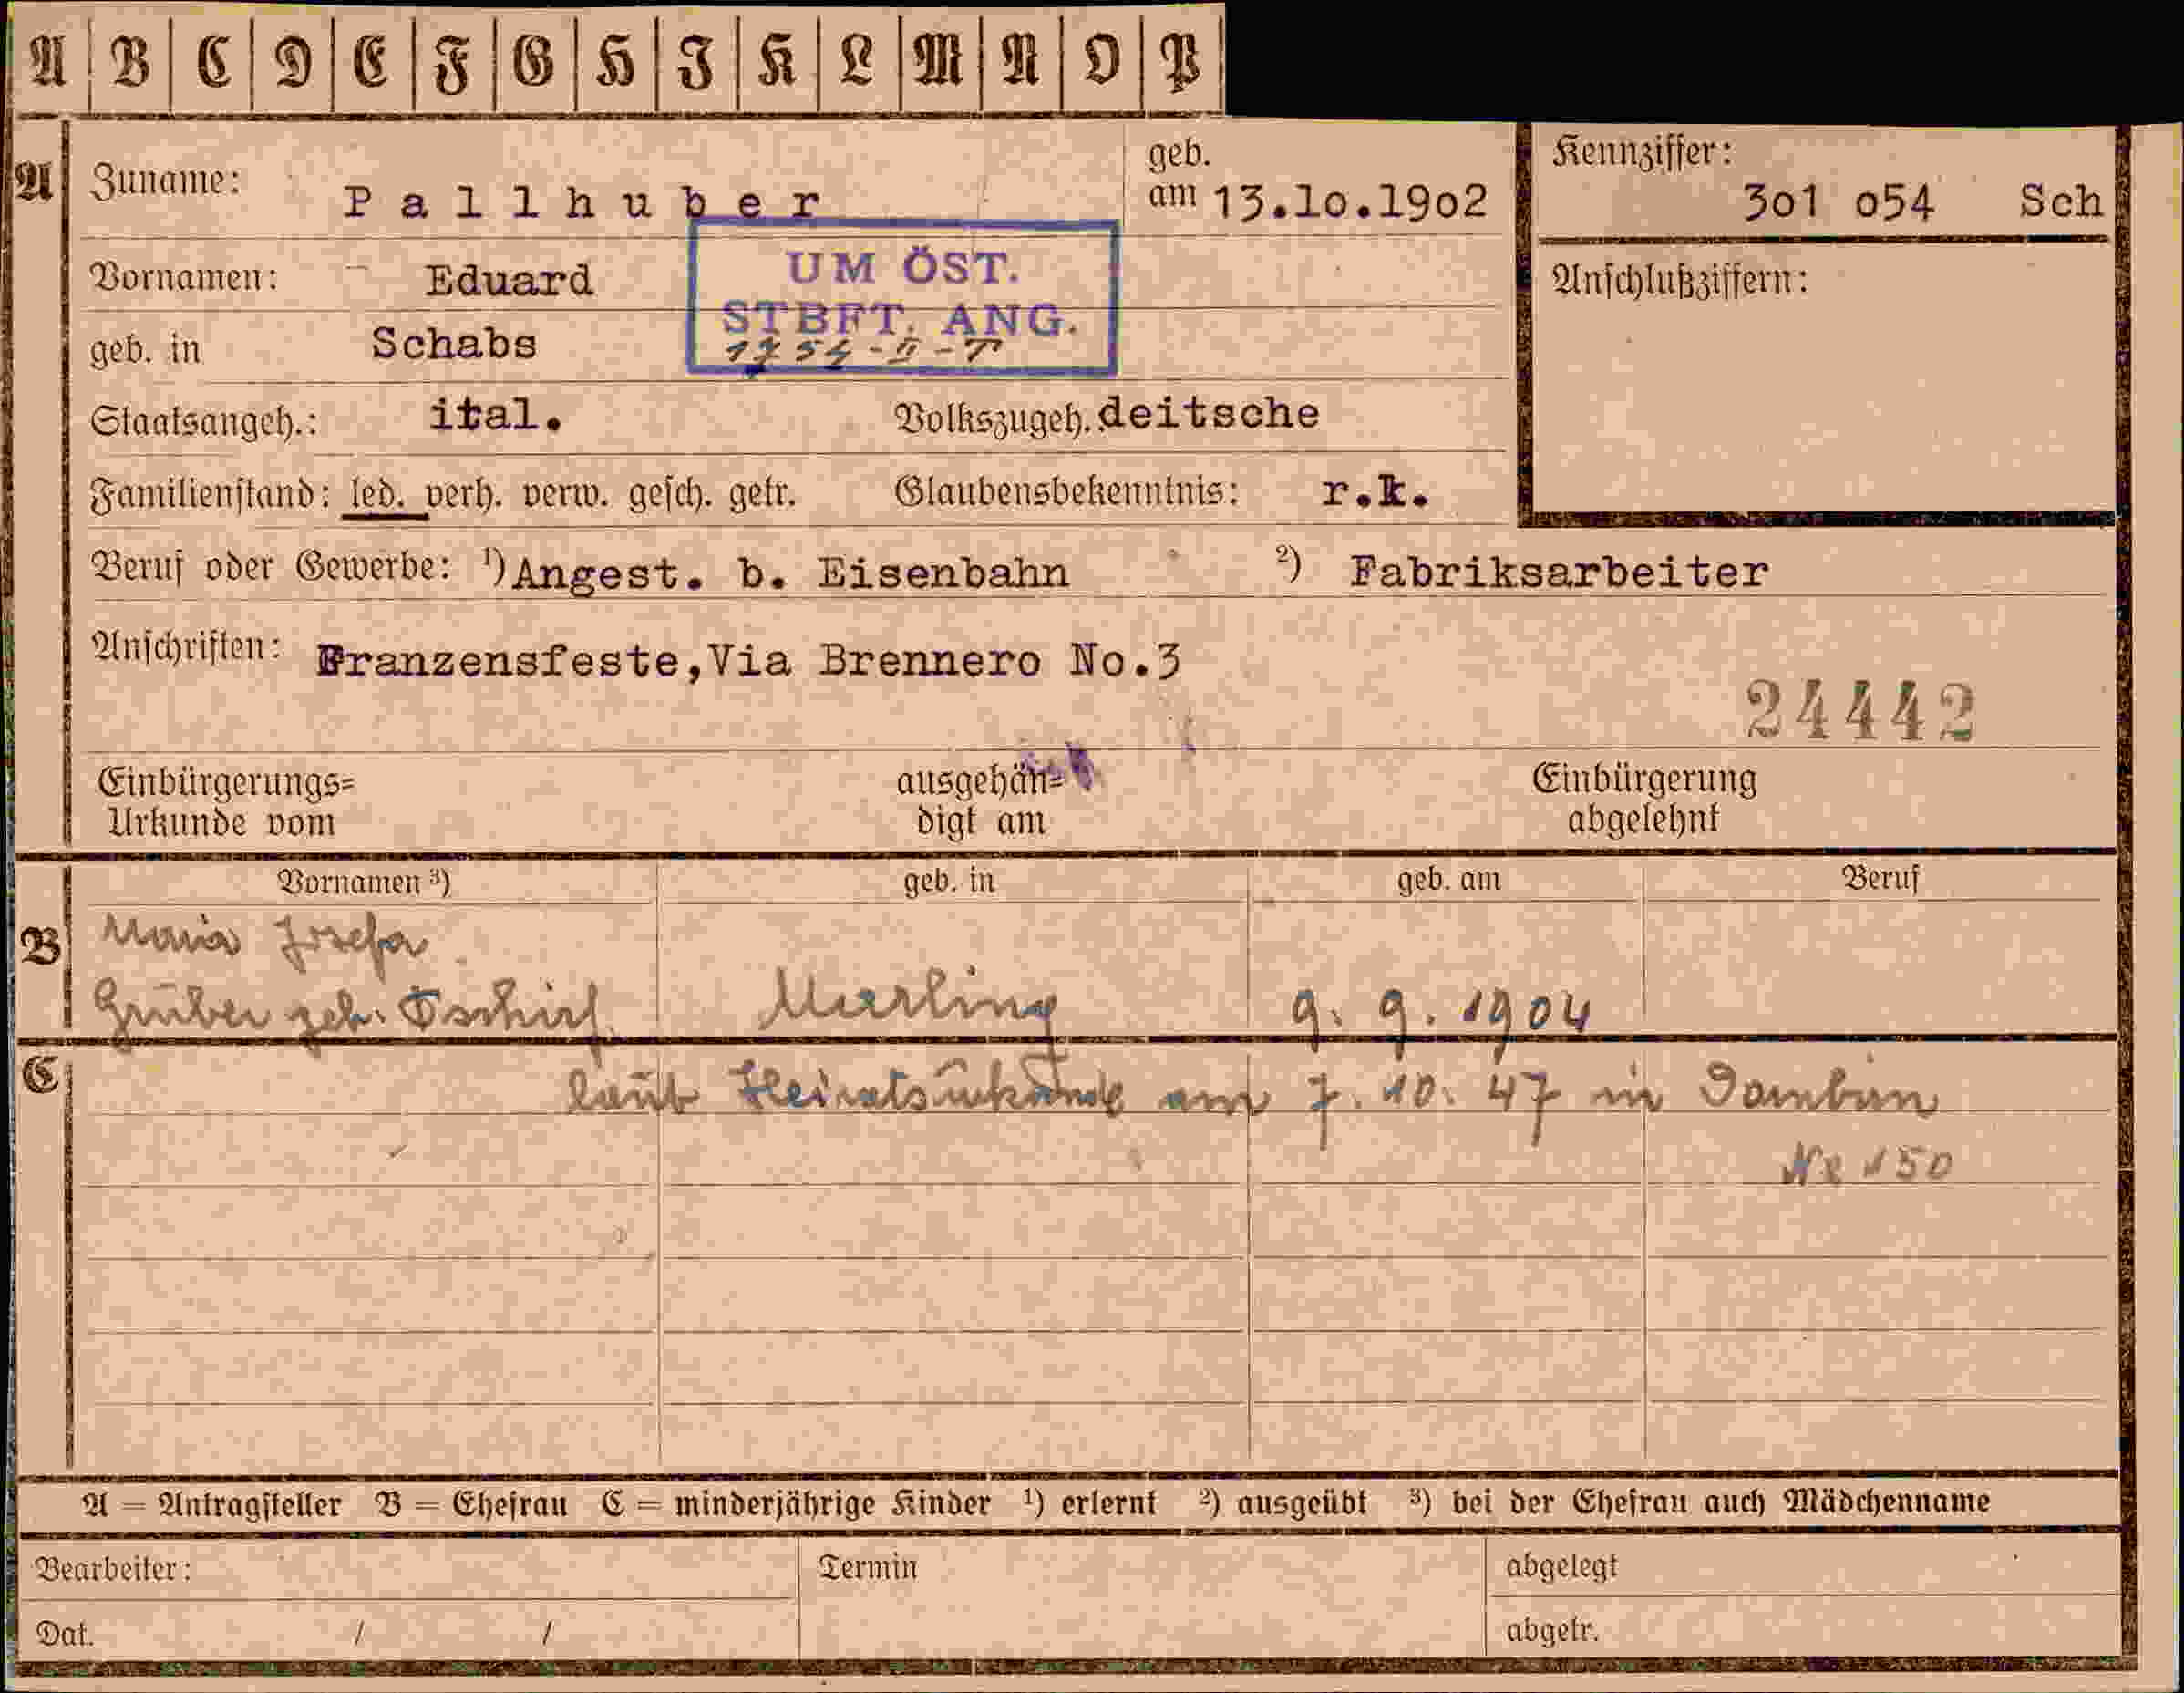 A B C D E F G H I K L M N O P
A Zuname: Pallhuber geb. am 13.10.1902 Kennziffer: 301 054 Sch
UM ÖST.
STBFT. ANG.
Vornamen: Eduard Anschlußziffern:
geb. in Schabs
Staatsangeh.: ital. Volkszugeh. deitsche
Familienstand: led. verh. verw. gesch. getr. Glaubensbekenntnis: r.k.
Beruf oder Gewerbe: ¹) Angest. b. Eisenbahn ²) Fabriksarbeiter
Anschriften: Franzensfeste, Via Brennero No.3
24442
Einbürgerungs= ausgehän= Einbürgerung
Urkunde vom digt am abgelehnt
Vornamen ³) geb. in geb. am Beruf
B Maria Josefa
Gruber geb. Marling 9. 9. 1904
C laut Heiratsurkunde am 7. 10. 47 in
Nr 150
A = Antragsteller B = Ehefrau C = minderjährige Kinder ¹) erlernt ²) ausgeübt ³) bei der Ehefrau auch Mädchenname
Bearbeiter: Termin abgelegt
Dat. / / abgetr.